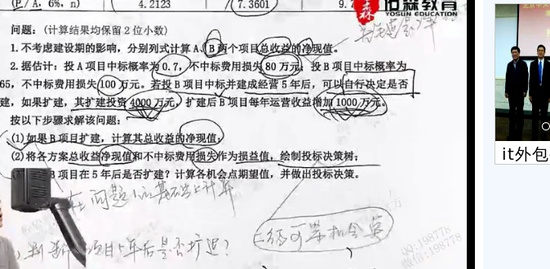 (P/A, 6%, n) 4.2123 7.3601 9.7
佑森教育
YOSUN EDUCATION
问题：（计算结果均保留 2 位小数）
1. 不考虑建设期的影响，分别列式计算 A、B 两个项目总收益的净现值。
2. 据估计：投 A 项目中标概率为 0.7，不中标费用损失 80 万元；投 B 项目中标概率为
65，不中标费用损失 100 万元。若投 B 项目中标并建成经营 5 年后，可以自行决定是否
建，如果扩建，其扩建投资 4000 万元，扩建后 B 项目每年运营收益增加 1000 万元。
按以下步骤求解该问题：
(1) 如果 B 项目扩建，计算其总收益的净现值；
(2) 将各方案总收益净现值和不中标费用损失作为损益值，绘制投标决策树；
B 项目在 5 年后是否扩建？计算各机会点期望值，并做出投标决策。
在问题1的基础上计算
判断 项目5年后是否扩建？
QQ:198778
微信:198778
it外包